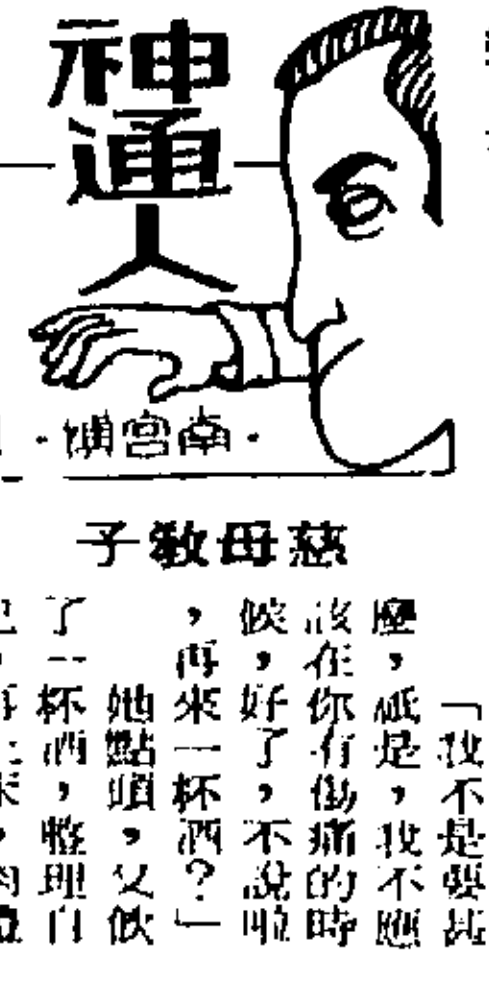 神通人
·南宮
慈母敎子
「我不是要甚
麼，祇是，我不應
該在你有傷痛的時
候，好了，不說啦
，再來一杯酒？」
她點頭，又飲
了一杯酒，整理自